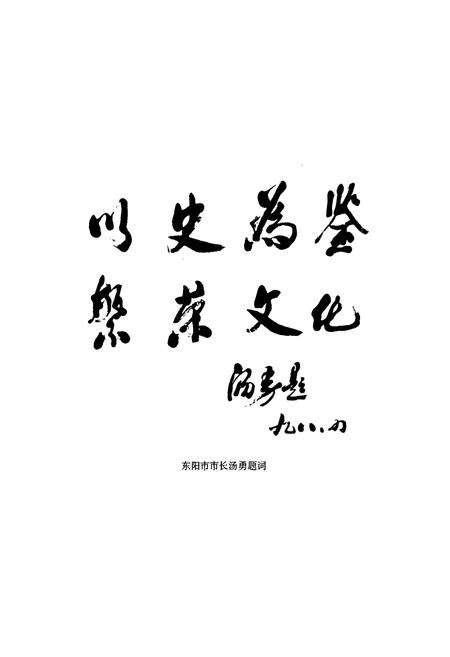 以史為鉴
繁荣文化
汤勇题
九八、四
东阳市市长汤勇题词